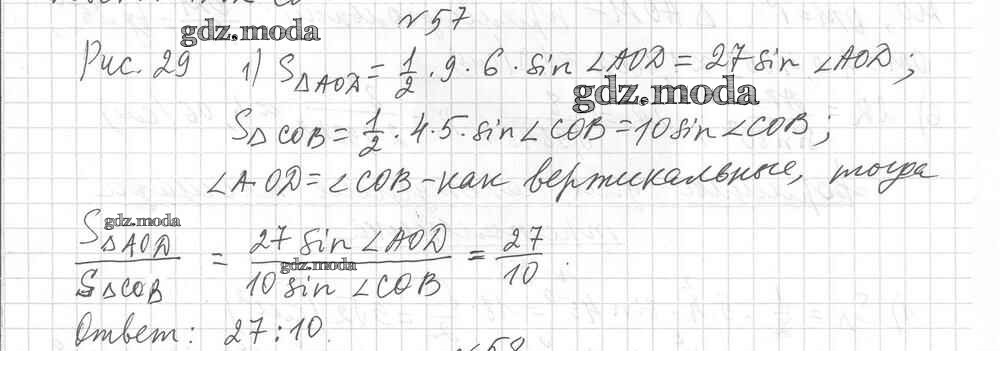 №57
gdz.moda
Рис. 29 1) S△AOD = 1/2 · 9 · 6 · sin ∠AOD = 27 sin ∠AOD;
gdz.moda
S△COB = 1/2 · 4 · 5 · sin ∠COB = 10 sin ∠COB;
∠AOD = ∠COB – как вертикальные, тогда
gdz.moda
S△AOD / S△COB = 27 sin ∠AOD / 10 sin ∠COB = 27/10.
gdz.moda
Ответ: 27 : 10.
№58